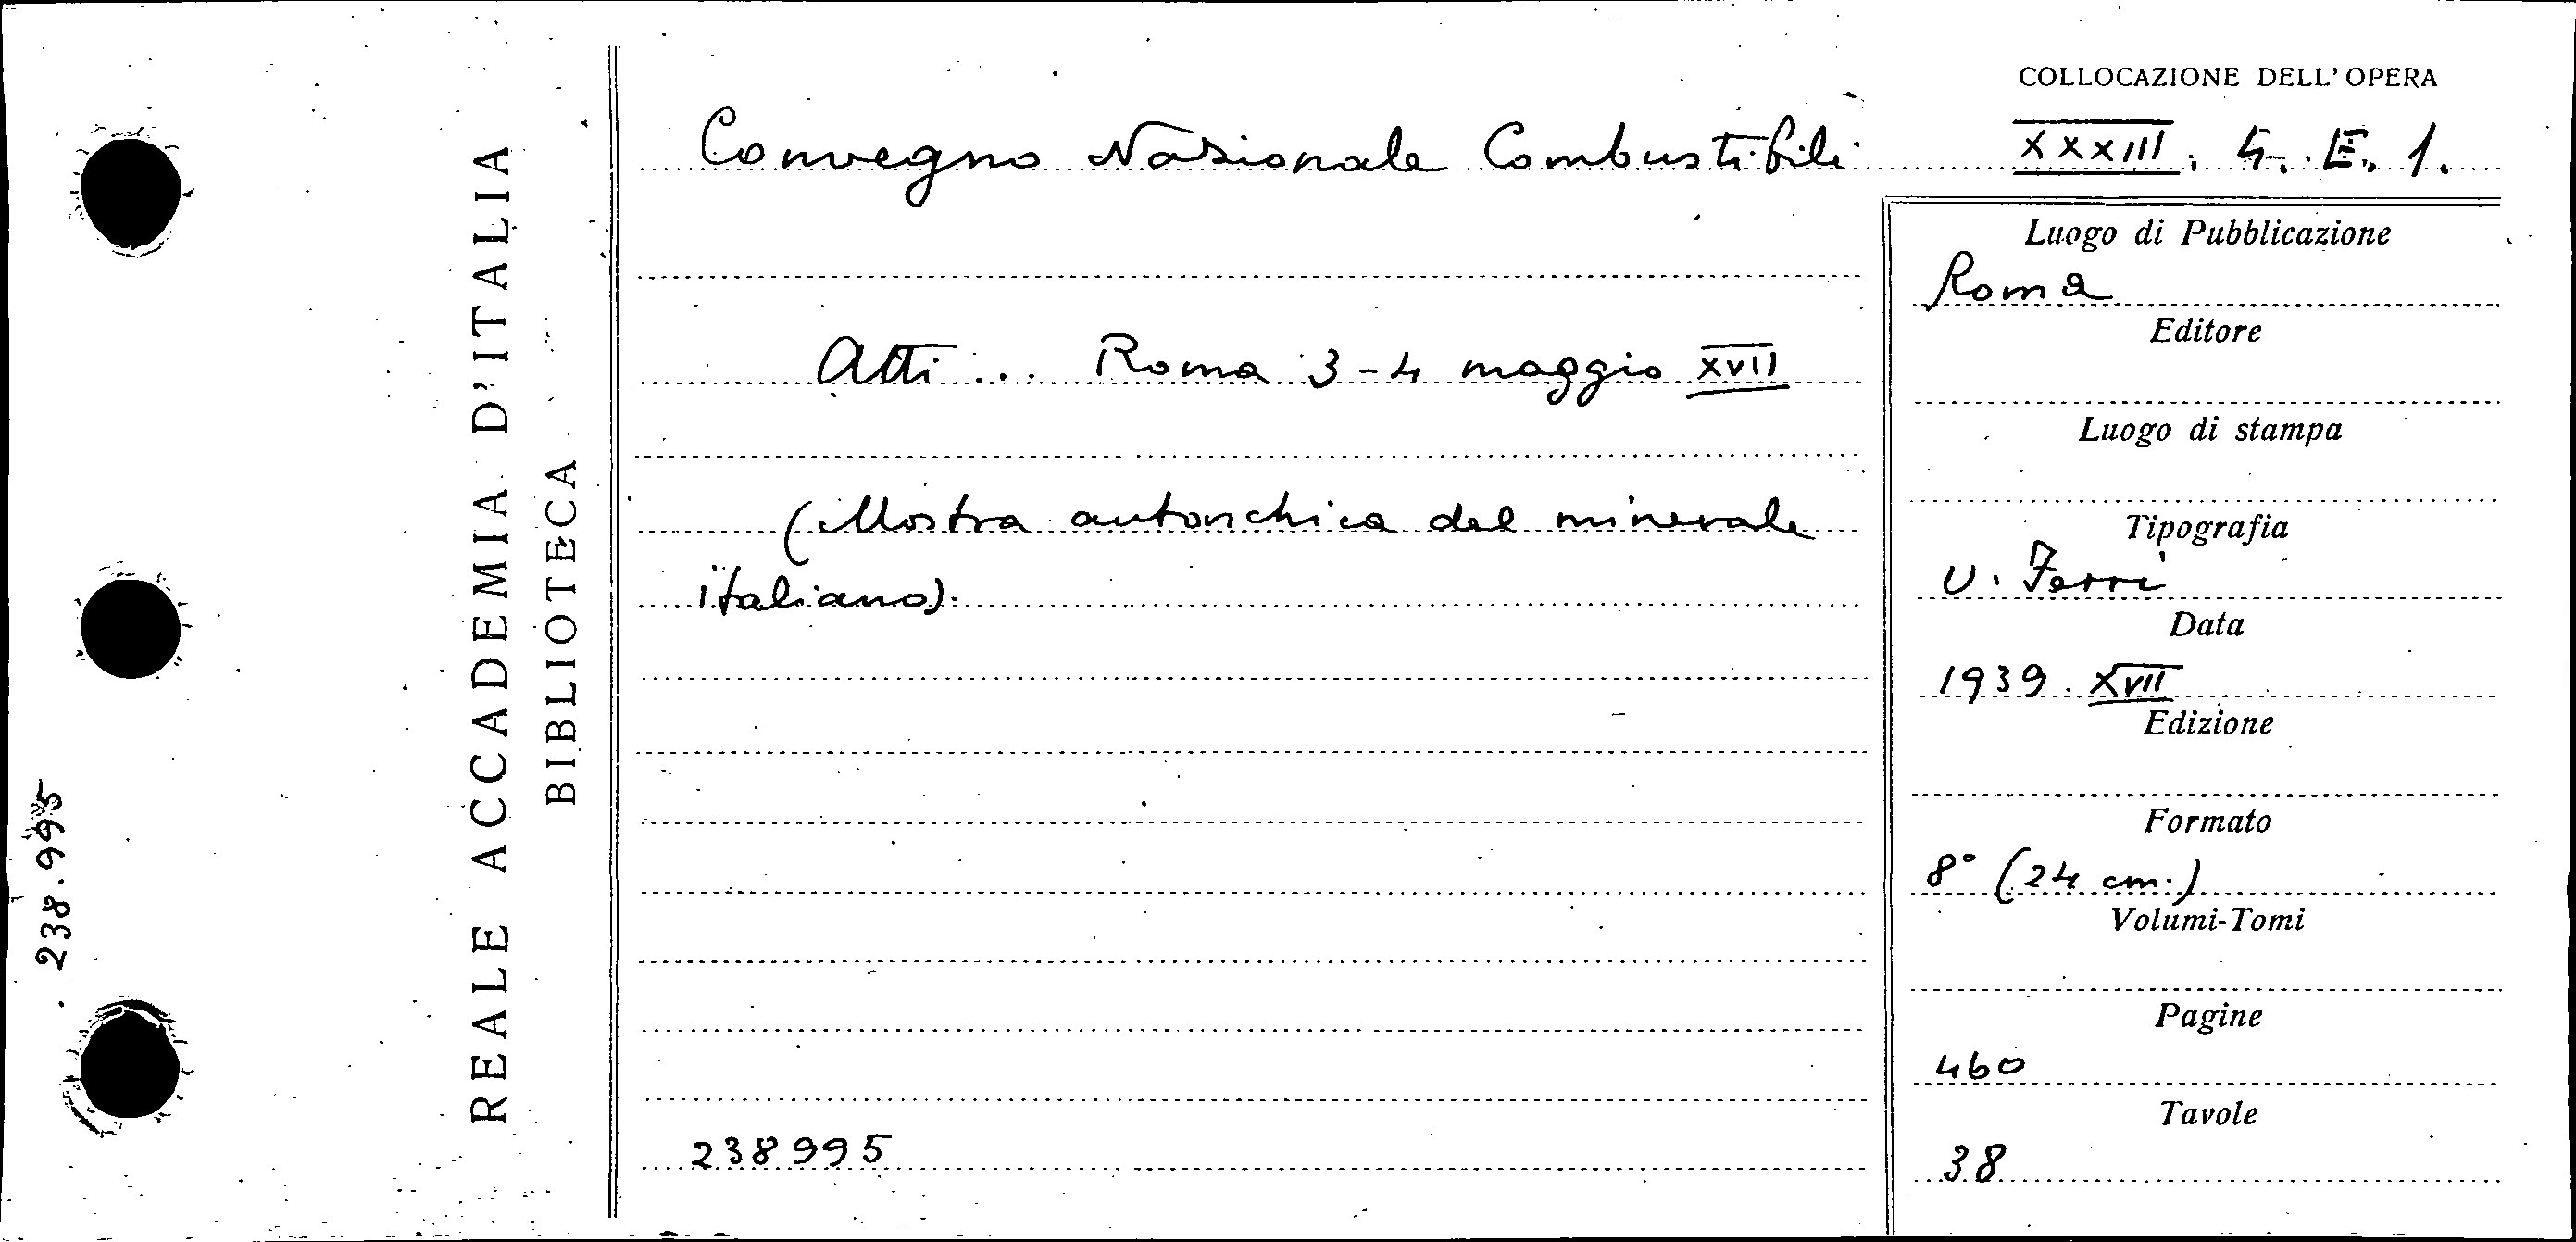 COLLOCAZIONE DELL' OPERA
Convegno Nazionale Combustibili
XXXIII. 5. E. 1.
Atti ... Roma 3-4 maggio XVII
(Mostra autarchica del minerale
italiano).
238995
Luogo di Pubblicazione
Roma
Editore
Luogo di stampa
Tipografia
U. Ferri
Data
1939. XVII
Edizione
Formato
8° (24 cm.)
Volumi-Tomi
Pagine
460
Tavole
38
REALE ACCADEMIA D'ITALIA
BIBLIOTECA
238.995